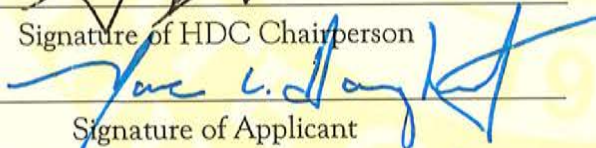 Signature of HDC Chairperson
Signature of Applicant